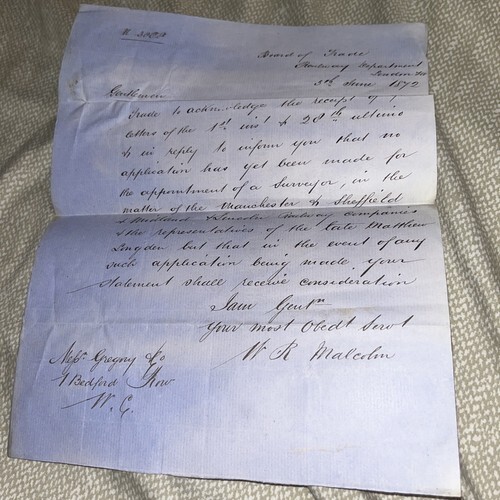 Board of Trade
Railway Department
London SW
5th June 1872
Gentlemen
Trade to acknowledge the receipt of
letters of the 1st inst & 28th ultimo
& in reply to inform you that no
application has yet been made for
the appointment of a Surveyor, in the
matter of the Manchester & Sheffield
& Midland & Lincoln Railway Companies
& the representatives of the late Matthew
Longden but that in the event of any
such application being made your
statement shall receive consideration
I am Gentn
Your most Obedt Servt
W R Malcolm
Messrs Gregory & Co
1 Bedford Row
W.C.